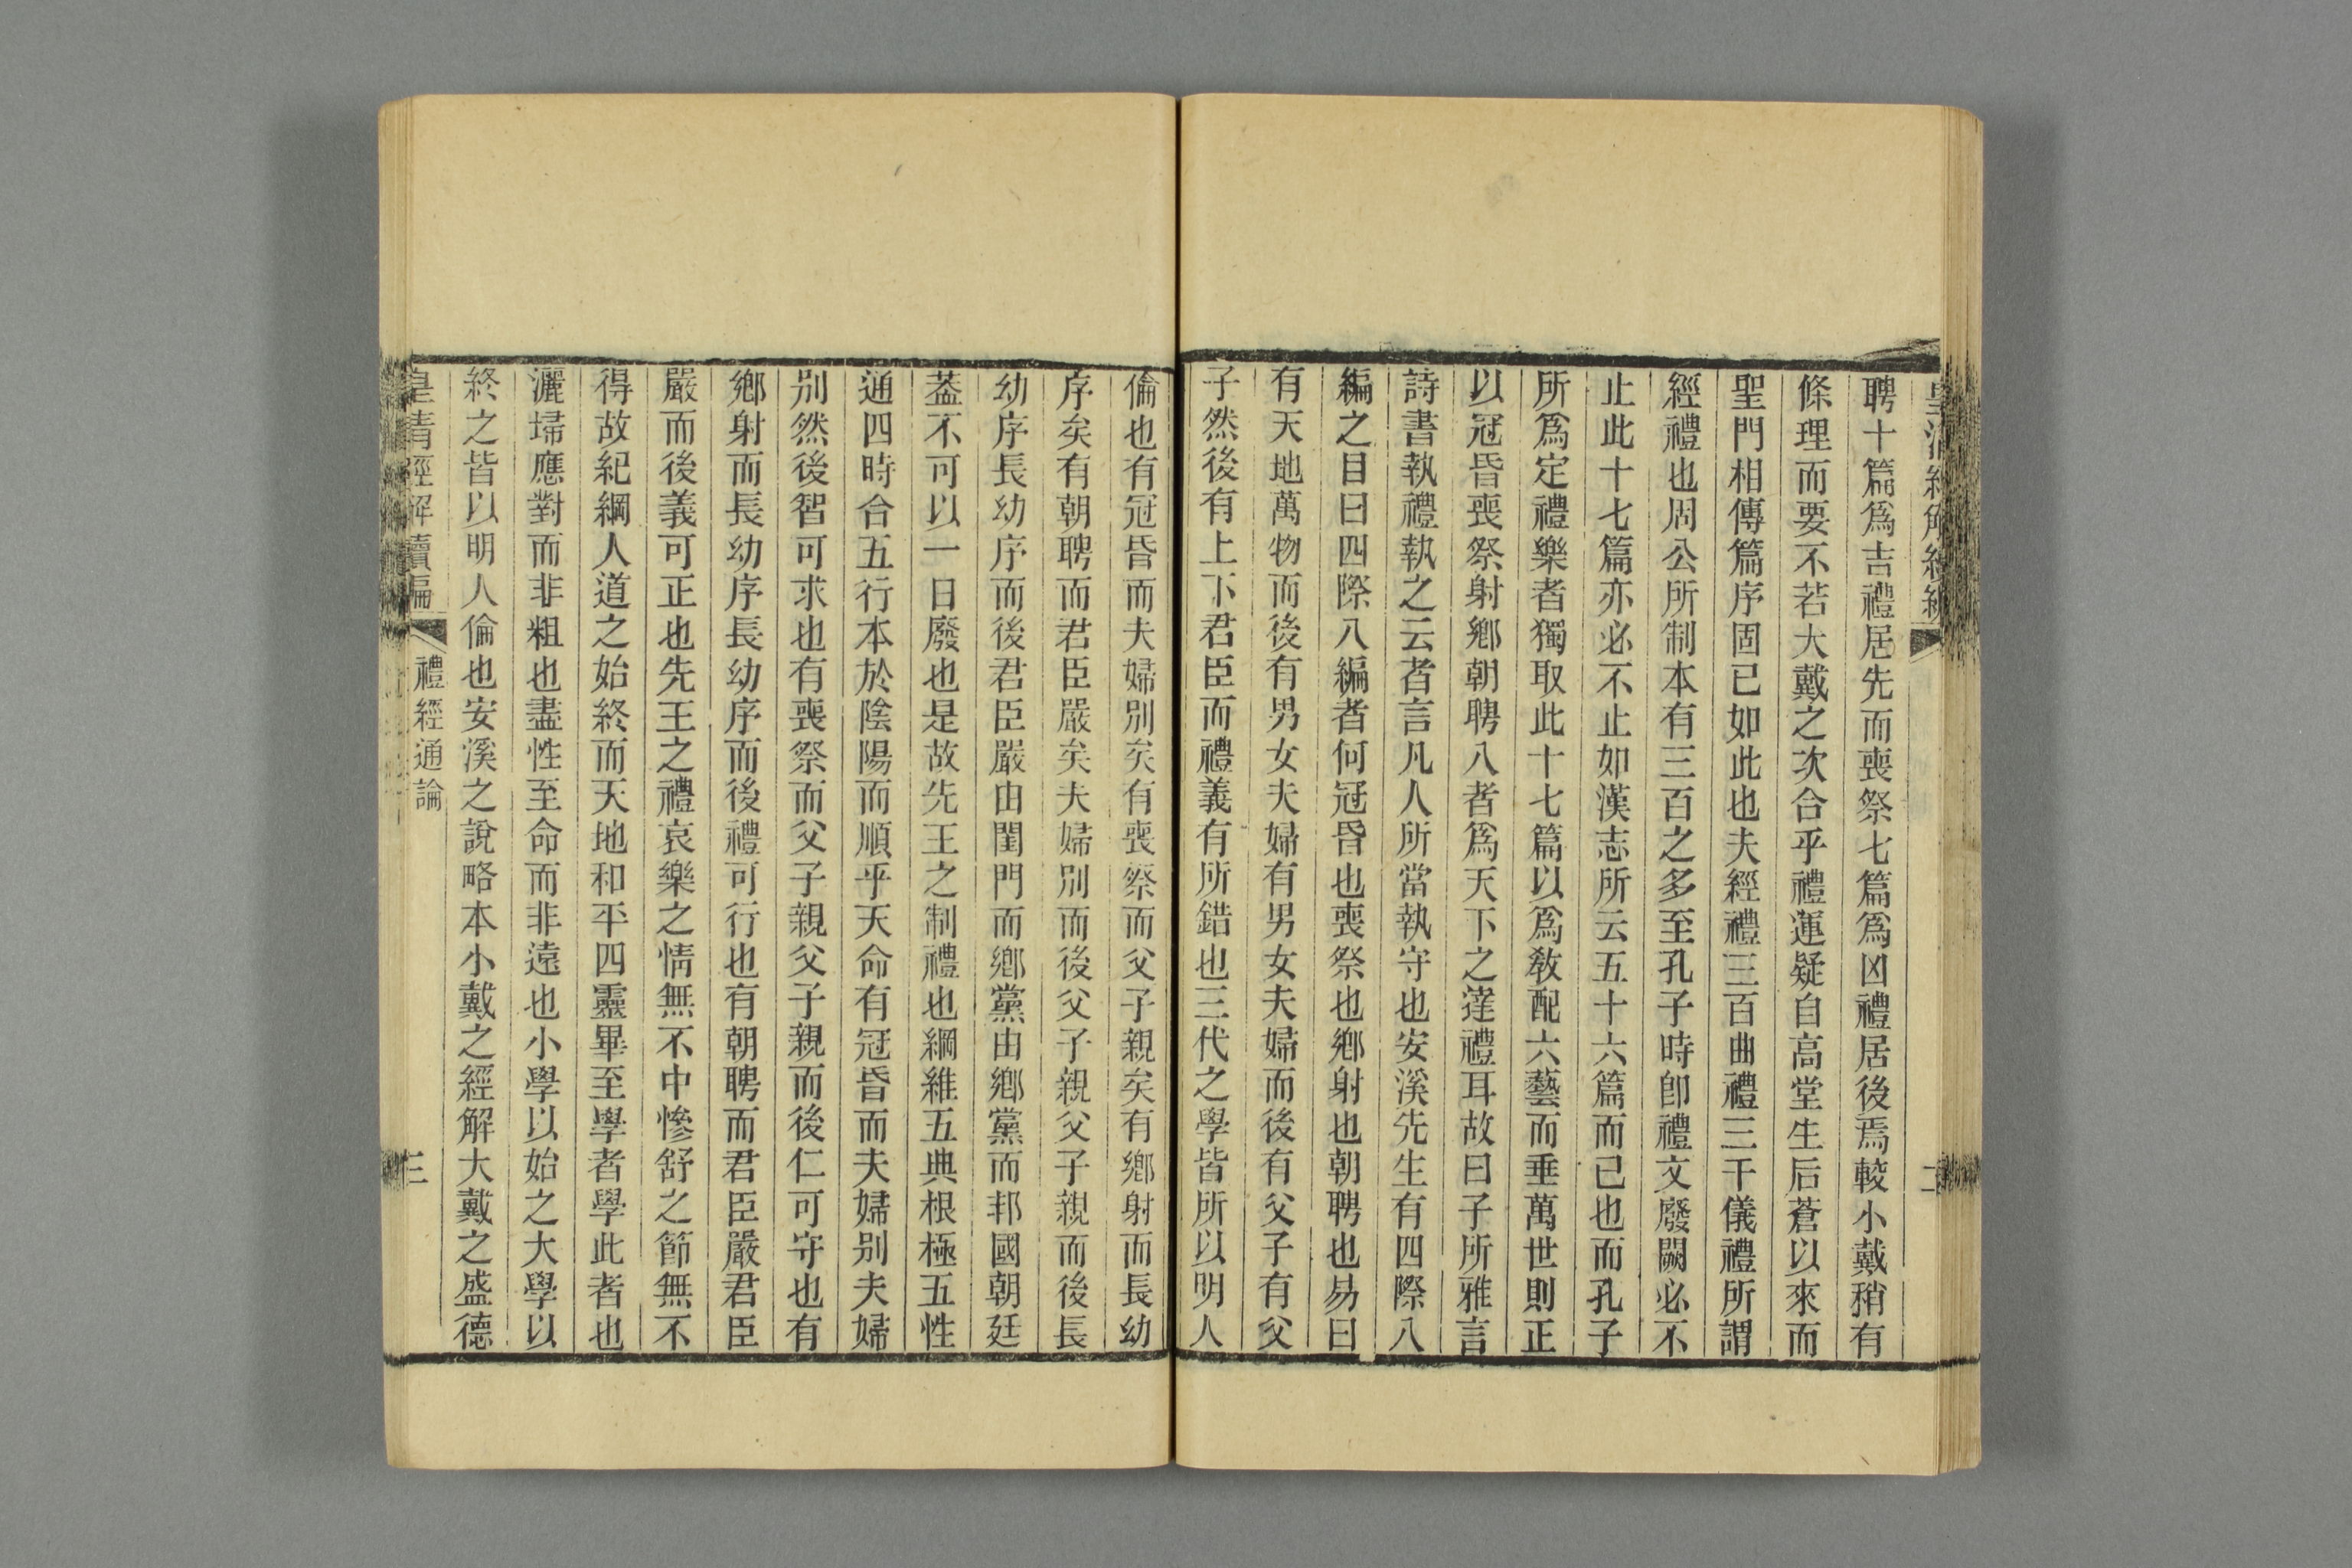 皇清經解續編
聘十篇爲吉禮居先而喪祭七篇爲凶禮居後焉較小戴稍有
條理而要不若大戴之次合乎禮運疑自高堂生后蒼以來而
聖門相傳篇序固已如此也夫經禮三百曲禮三千儀禮所謂
經禮也周公所制本有三百之多至孔子時卽禮文廢闕必不
止此十七篇亦必不止如漢志所云五十六篇而已也而孔子
所爲定禮樂者獨取此十七篇以爲敎配六藝而垂萬世則正
以冠昏喪祭射鄕朝聘八者爲天下之達禮耳故曰子所雅言
詩書執禮執之云者言凡人所當執守也安溪先生有四際八
編之目曰四際八編者何冠昏也喪祭也鄕射也朝聘也易曰
有天地萬物而後有男女夫婦有男女夫婦而後有父子有父
子然後有上下君臣而禮義有所錯也三代之學皆所以明人
倫也有冠昏而夫婦別矣有喪祭而父子親矣有鄕射而長幼
序矣有朝聘而君臣嚴矣夫婦別而後父子親父子親而後長
幼序長幼序而後君臣嚴由閨門而鄕黨由鄕黨而邦國朝廷
葢不可以一日廢也是故先王之制禮也綱維五典根極五性
通四時合五行本於陰陽而順乎天命有冠昏而夫婦別夫婦
別然後智可求也有喪祭而父子親父子親而後仁可守也有
鄕射而長幼序長幼序而後禮可行也有朝聘而君臣嚴君臣
嚴而後義可正也先王之禮哀樂之情無不中慘舒之節無不
得故紀綱人道之始終而天地和平四靈畢至學者學此者也
灑埽應對而非粗也盡性至命而非遠也小學以始之大學以
終之皆以明人倫也安溪之說略本小戴之經解大戴之盛德
皇清經解續編 禮經通論 三